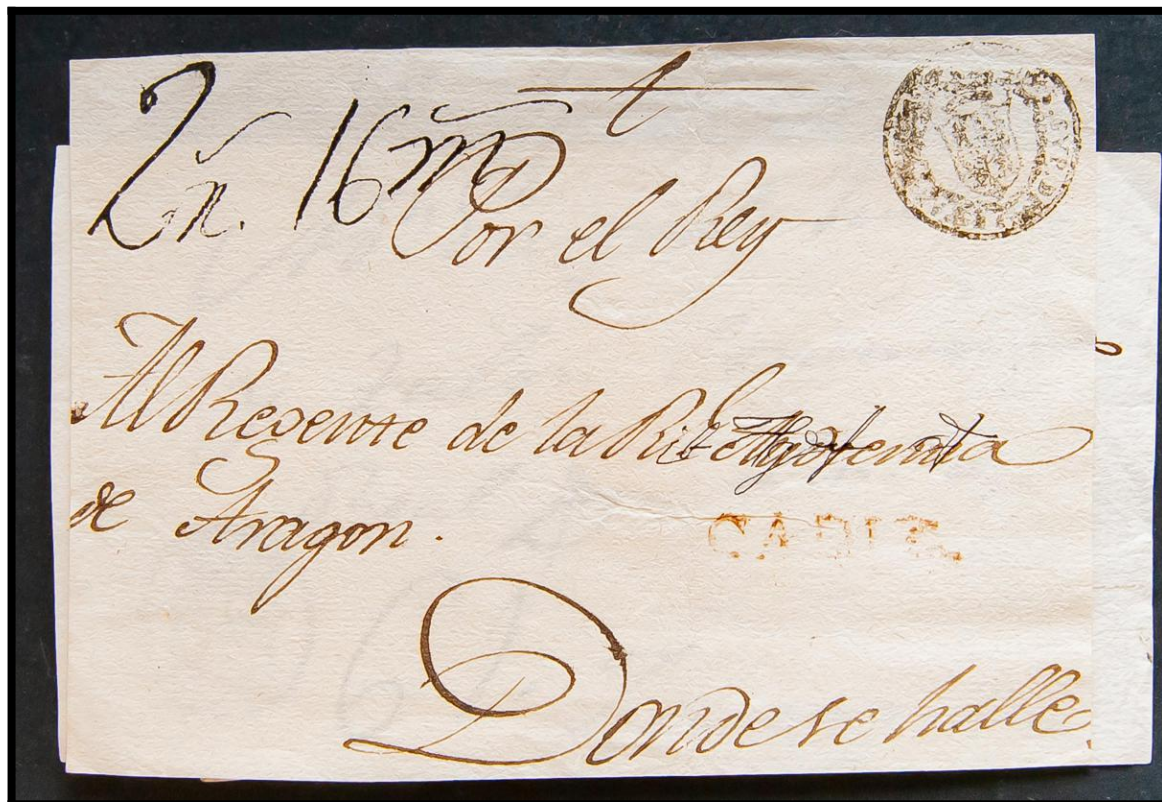 2 rn. 16 mrs
Por el Rey
Al Regente de la Rl
de Aragon.
CADIZ.
Donde se halle.